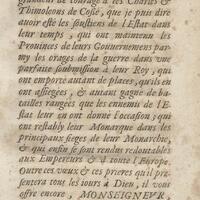 grandeur de courage à les Charles &
Thimoleons de Cossé, que je puis dire
avoir esté les soustiens de l'Estat dans
leur temps, qui ont maintenu les
Provinces de leurs Gouvernemens par-
my les orages de la guerre dans une
parfaite soubmission à leur Roy, qui
ont emporté autant de places, qu'ils en
ont assiegées, & autant gagné de ba-
tailles rangées que les ennemis de l'E-
stat leur en ont donné l'occasion; qui
ont restably leur Monarque dans les
principaux sieges de leur Monarchie,
& qui enfin se sont rendus redoutables
aux Empereurs & à toute l'Europe.
Outre ces vœux & ces prieres qu'il pre-
sentera tous les jours à Dieu, il vous
offre encore, MONSEIGNEUR,